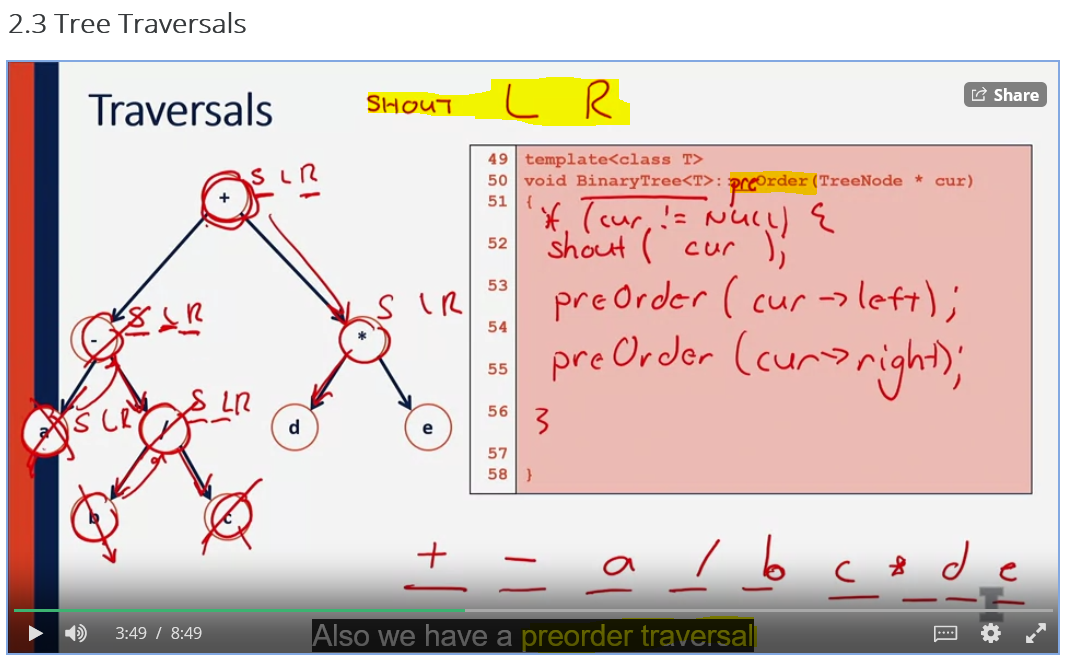 2.3 Tree Traversals
Traversals
SHOUT L R
Share
+
S L R
-
S L R
*
S L R
a
S L R
/
S L R
d
e
b
c
49 template<class T>
50 void BinaryTree<T>::preOrder(TreeNode * cur)
51 {
if (cur != NULL) {
52 shout ( cur );
53 preOrder ( cur -> left);
54
55 preOrder (cur->right);
56 }
57
58 }
+ - a / b c * d e
3:49 / 8:49
Also we have a preorder traversal